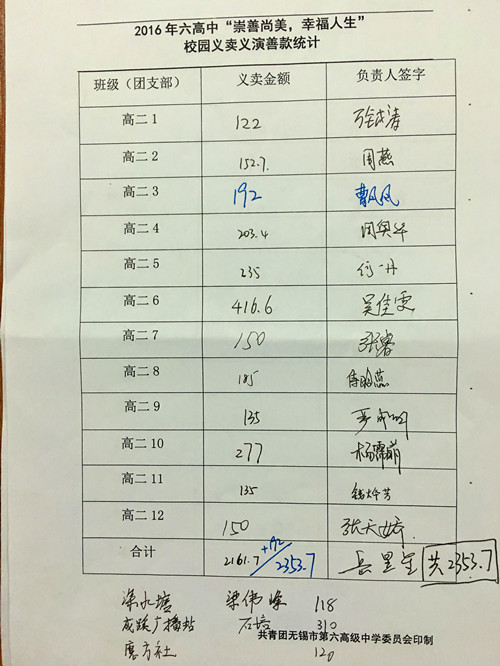 2016年六高中“崇善尚美，幸福人生”
校园义卖义演善款统计
班级（团支部） 义卖金额 负责人签字
高二1 122
高二2 152.7. 周燕
高二3 192 曹凤凤
高二4 203.4
高二5 235 何一丹
高二6 416.6 吴佳雯
高二7 150 张睿
高二8 185
高二9 135
高二10 277 杨霈萌
高二11 135
高二12 150 张天娇
合计 2161.7 +192 2353.7 共2353.7
梁伟峰 118
成蹊广播站 石培 310
共青团无锡市第六高级中学委员会印制
魔方社 120